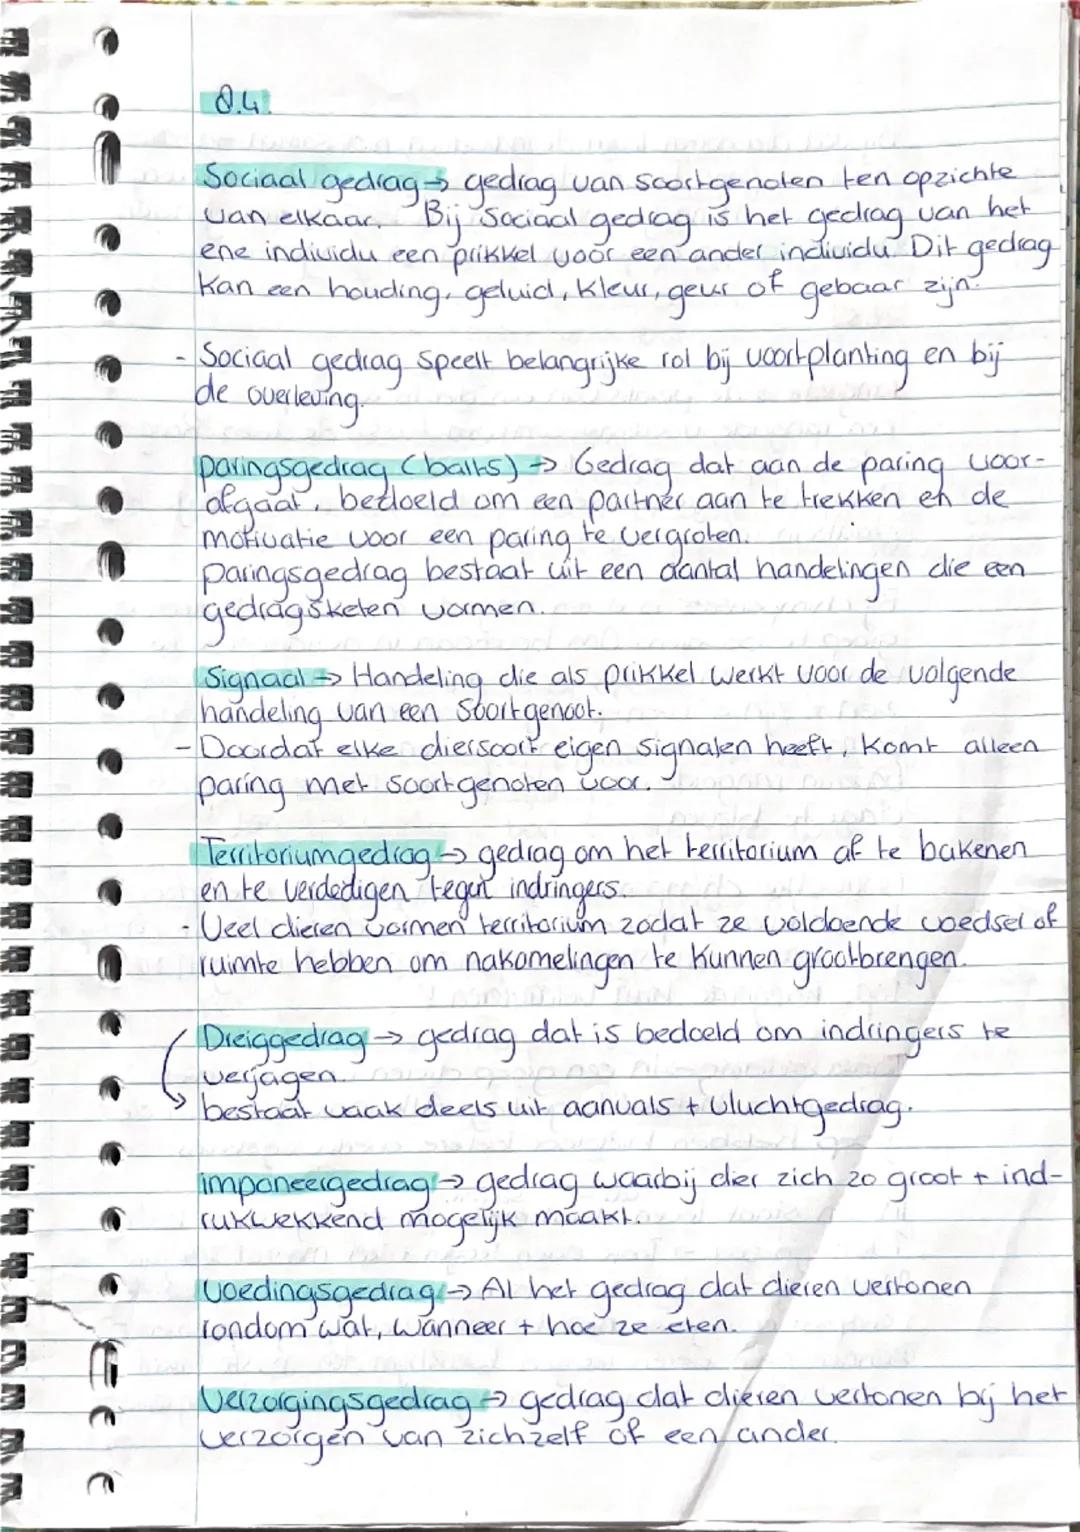 8.4.
Sociaal gedrag → gedrag van soortgenoten ten opzichte
van elkaar. Bij Sociaal gedrag is het gedrag van het
ene individu een prikkel voor een ander individu. Dit gedrag
kan een houding, geluid, kleur, geur of gebaar zijn.
- Sociaal gedrag speelt belangrijke rol bij voortplanting en bij
de overleving.
paringsgedrag (balts) → Gedrag dat aan de paring voor-
afgaat, bedoeld om een partner aan te trekken en de
motivatie voor een paring te vergroten.
paringsgedrag bestaat uit een aantal handelingen die een
gedragsketen vormen.
Signaal → Handeling die als prikkel werkt voor de volgende
handeling van een Soortgenoot.
- Doordat elke diersoort eigen signalen heeft, komt alleen
paring met soortgenoten voor.
Territoriumgedrag → gedrag om het territorium af te bakenen
en te verdedigen tegen indringers.
- Veel dieren vormen territorium zodat ze voldoende voedsel of
ruimte hebben om nakomelingen te kunnen grootbrengen.
Dreiggedrag → gedrag dat is bedoeld om indringers te
verjagen.
bestaat vaak deels uit aanvals + vluchtgedrag.
imponeergedrag → gedrag waarbij dier zich zo groot + ind-
rukwekkend mogelijk maakt.
Voedingsgedrag → Al het gedrag dat dieren vertonen
rondom wat, wanneer + hoe ze eten.
Verzorgingsgedrag → gedrag dat dieren vertonen bij het
verzorgen van zichzelf of een ander.